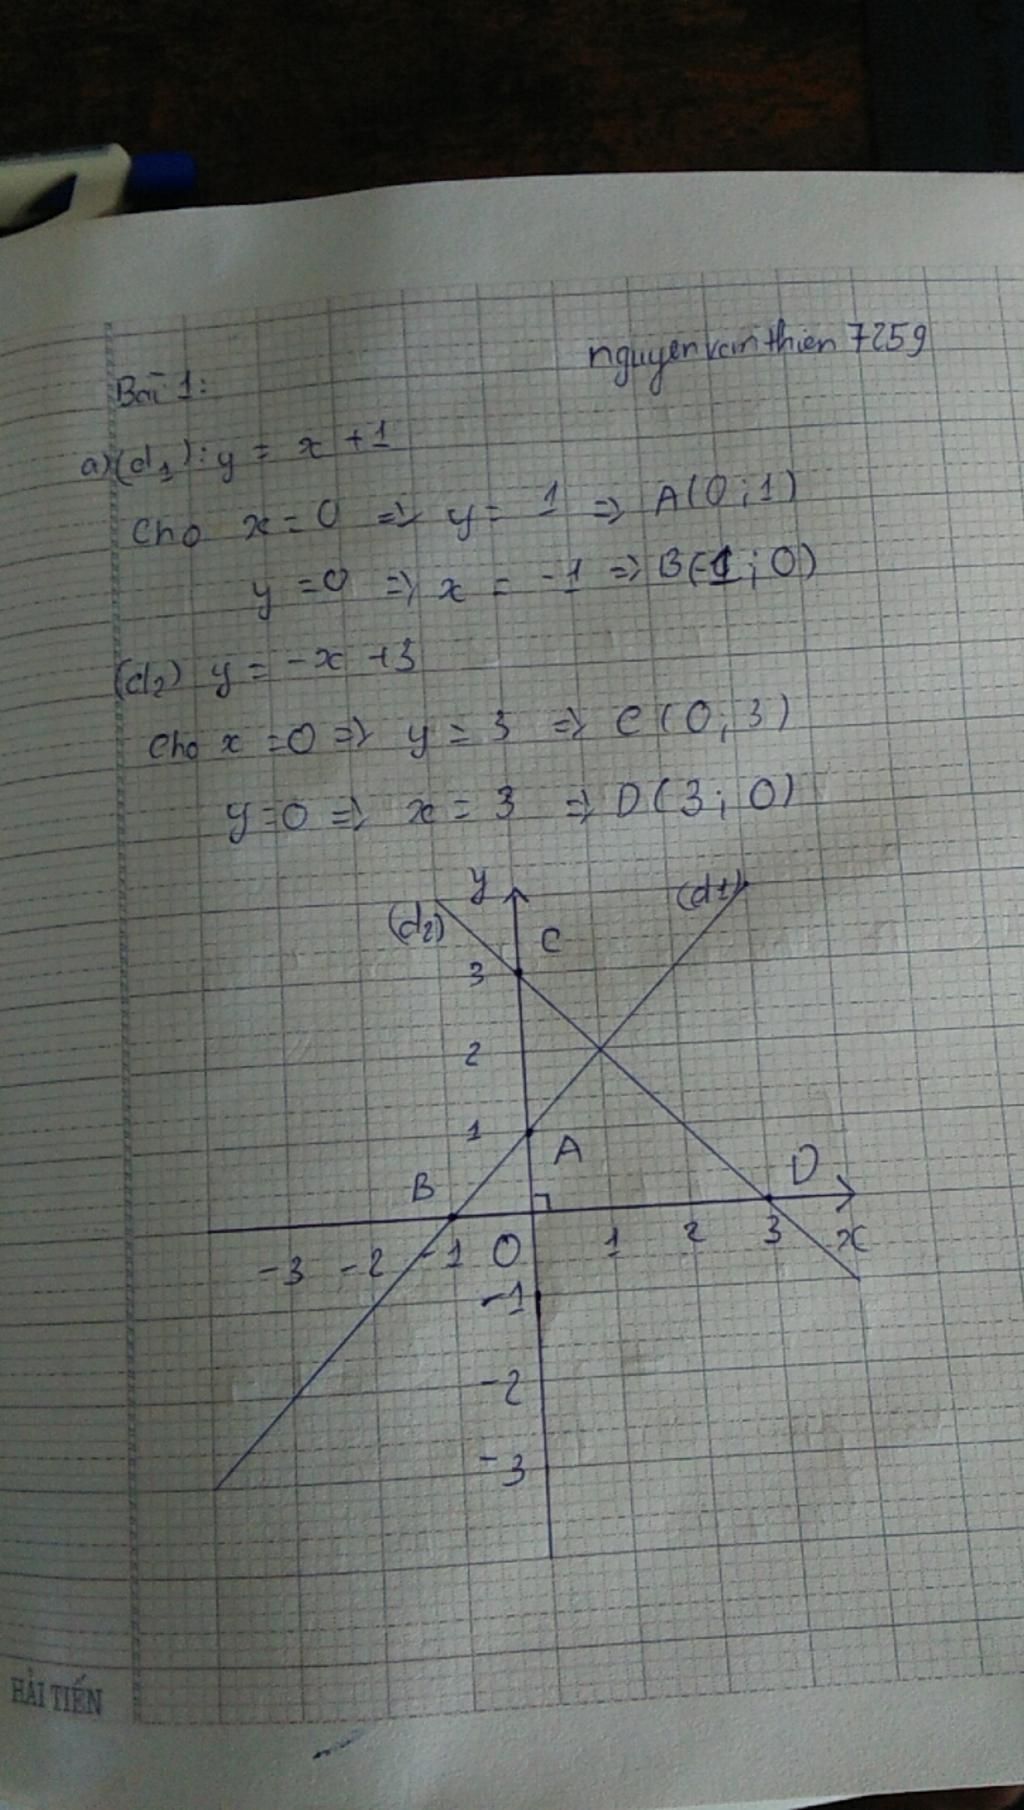 nguyenvanthien 7259
Bài 1:
a) (d1): y = x + 1
Cho x = 0 => y = 1 => A(0;1)
y = 0 => x = -1 => B(-1;0)
(d2) y = -x + 3
Cho x = 0 => y = 3 => C(0;3)
y = 0 => x = 3 => D(3;0)
y
(d1)
(d2)
C
3
2
1
A
B
D
-3 -2 -1 O 1 2 3 x
-1
-2
-3
HẢI TIẾN